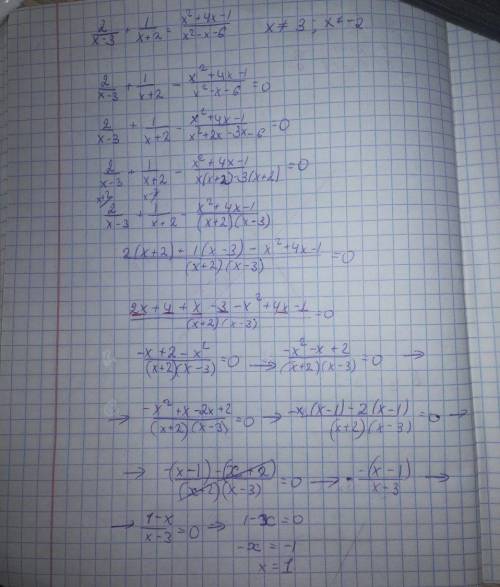 2/(x-3) + 1/(x+2) = (x²+4x-1)/(x²-x-6)   x≠3 ; x≠-2
2/(x-3) + 1/(x+2) - (x²+4x-1)/(x²-x-6) = 0
2/(x-3) + 1/(x+2) - (x²+4x-1)/(x²+2x-3x-6) = 0
2/(x-3) + 1/(x+2) - (x²+4x-1)/(x(x+2)-3(x+2)) = 0
2/(x-3) + 1/(x+2) - (x²+4x-1)/((x+2)(x-3))
(2(x+2)+1(x-3)-x²+4x-1)/((x+2)(x-3)) = 0
(2x+4+x-3-x²+4x-1)/((x+2)(x-3)) = 0
(-x+2-x²)/((x+2)(x-3)) = 0 → (-x²-x+2)/((x+2)(x-3)) = 0 →
→ (-x²+x-2x+2)/((x+2)(x-3)) = 0 → (-x(x-1)-2(x-1))/((x+2)(x-3)) = 0 →
→ (-(x-1))-(x+2)/((x+2)(x-3)) = 0 → -(x-1)/(x-3) →
→ (1-x)/(x-3) = 0 → 1-x = 0
-x = -1
x = 1